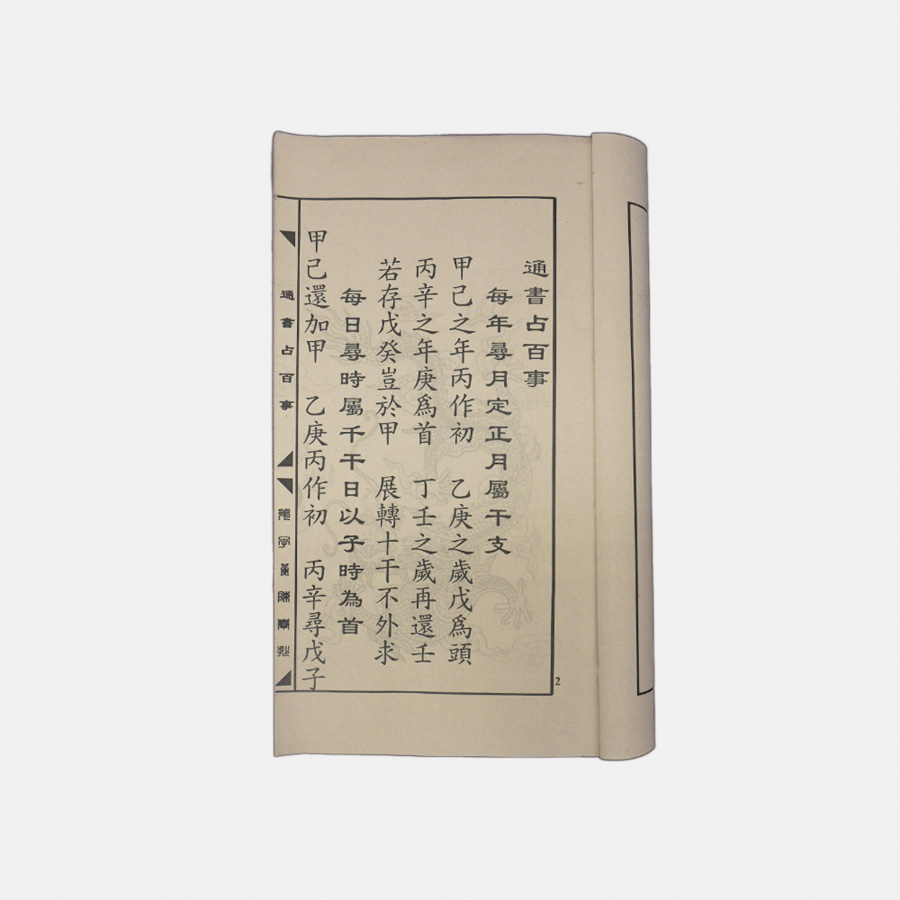 通書占百事
每年尋月定正月屬干支
甲己之年丙作初　乙庚之歲戊爲頭
丙辛之年庚爲首　丁壬之歲再還壬
若存戊癸豈於甲　展轉十干不外求
每日尋時屬千干日以子時為首
甲己還加甲　乙庚丙作初　丙辛尋戊子
通書占百事
2